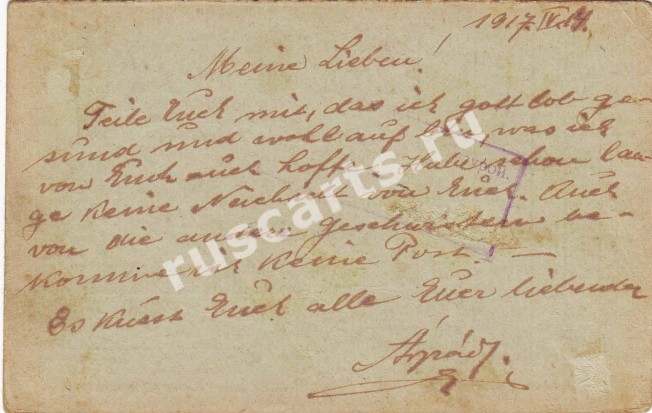 1917.IV.17.
Meine Lieben!
Teile Euch mit, das ich gottlob ge-
sund und wohl auf bin, was ich
von Euch auch hoffe. Habe schon lan-
ge keine Nachricht von Euch. Auch
von die andern geschwistern be-
komme ich keine Post. —
Es küsst Euch alle Euer liebender
Árpád.
ruscarts.ru